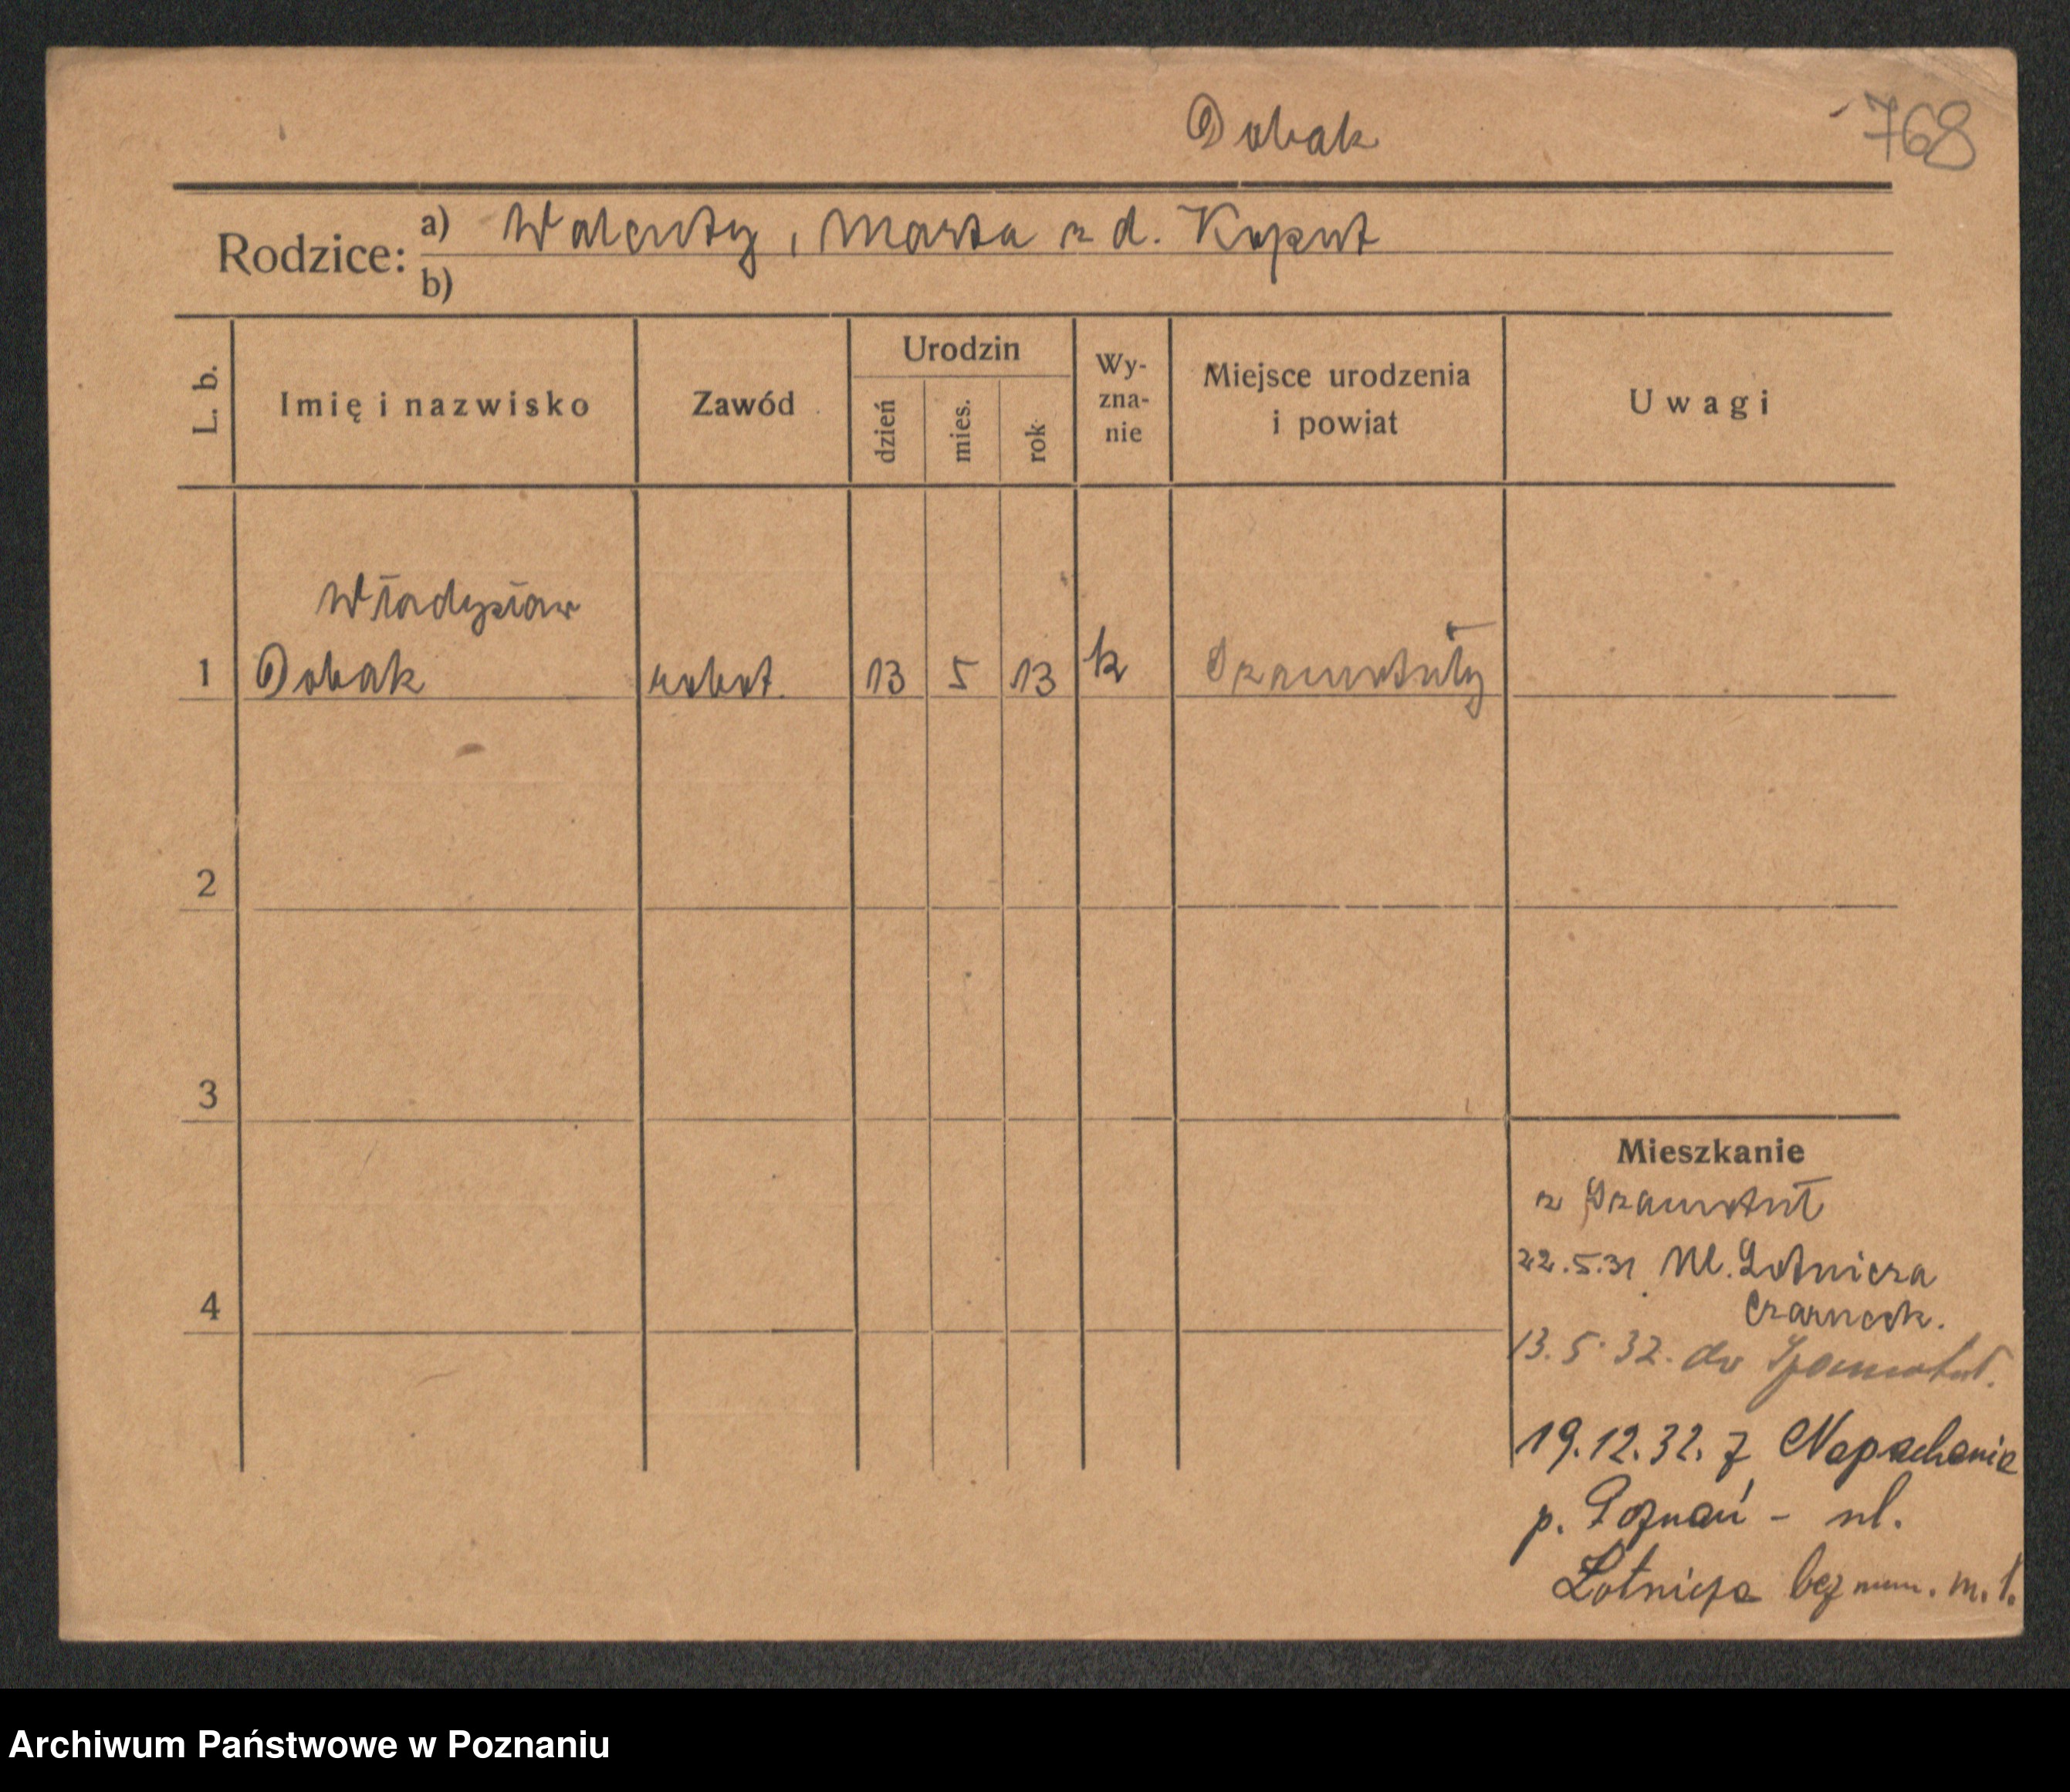 Dobak
768
Rodzice: a) Walenty, Marta z d. Kaput
b)
L. b.
Imię i nazwisko
Zawód
Urodzin
dzień
mies.
rok
Wy-
zna-
nie
Miejsce urodzenia
i powiat
Uwagi
Władysław
1 Dobak robot. 13 5 13 k Szamotuły
2
3
4
Mieszkanie
z Szamotuł
22.5.31 Ul. Lotnicza
13.5.32. do Szamotuł.
19.12.32. z Napachania
p. Poznań - ul.
Lotnicza bez num. m. 1.
Archiwum Państwowe w Poznaniu